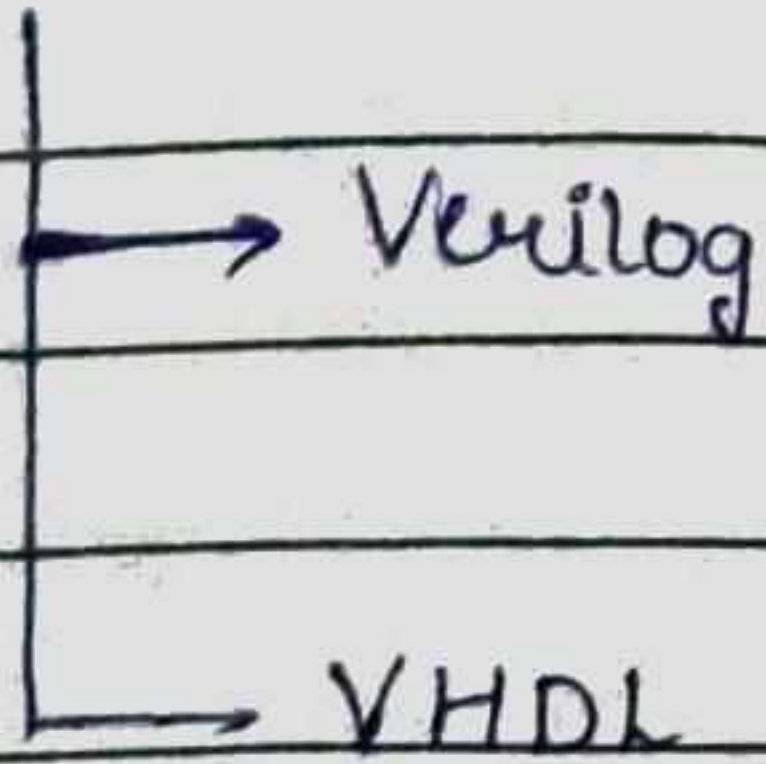 Verilog
VHDL